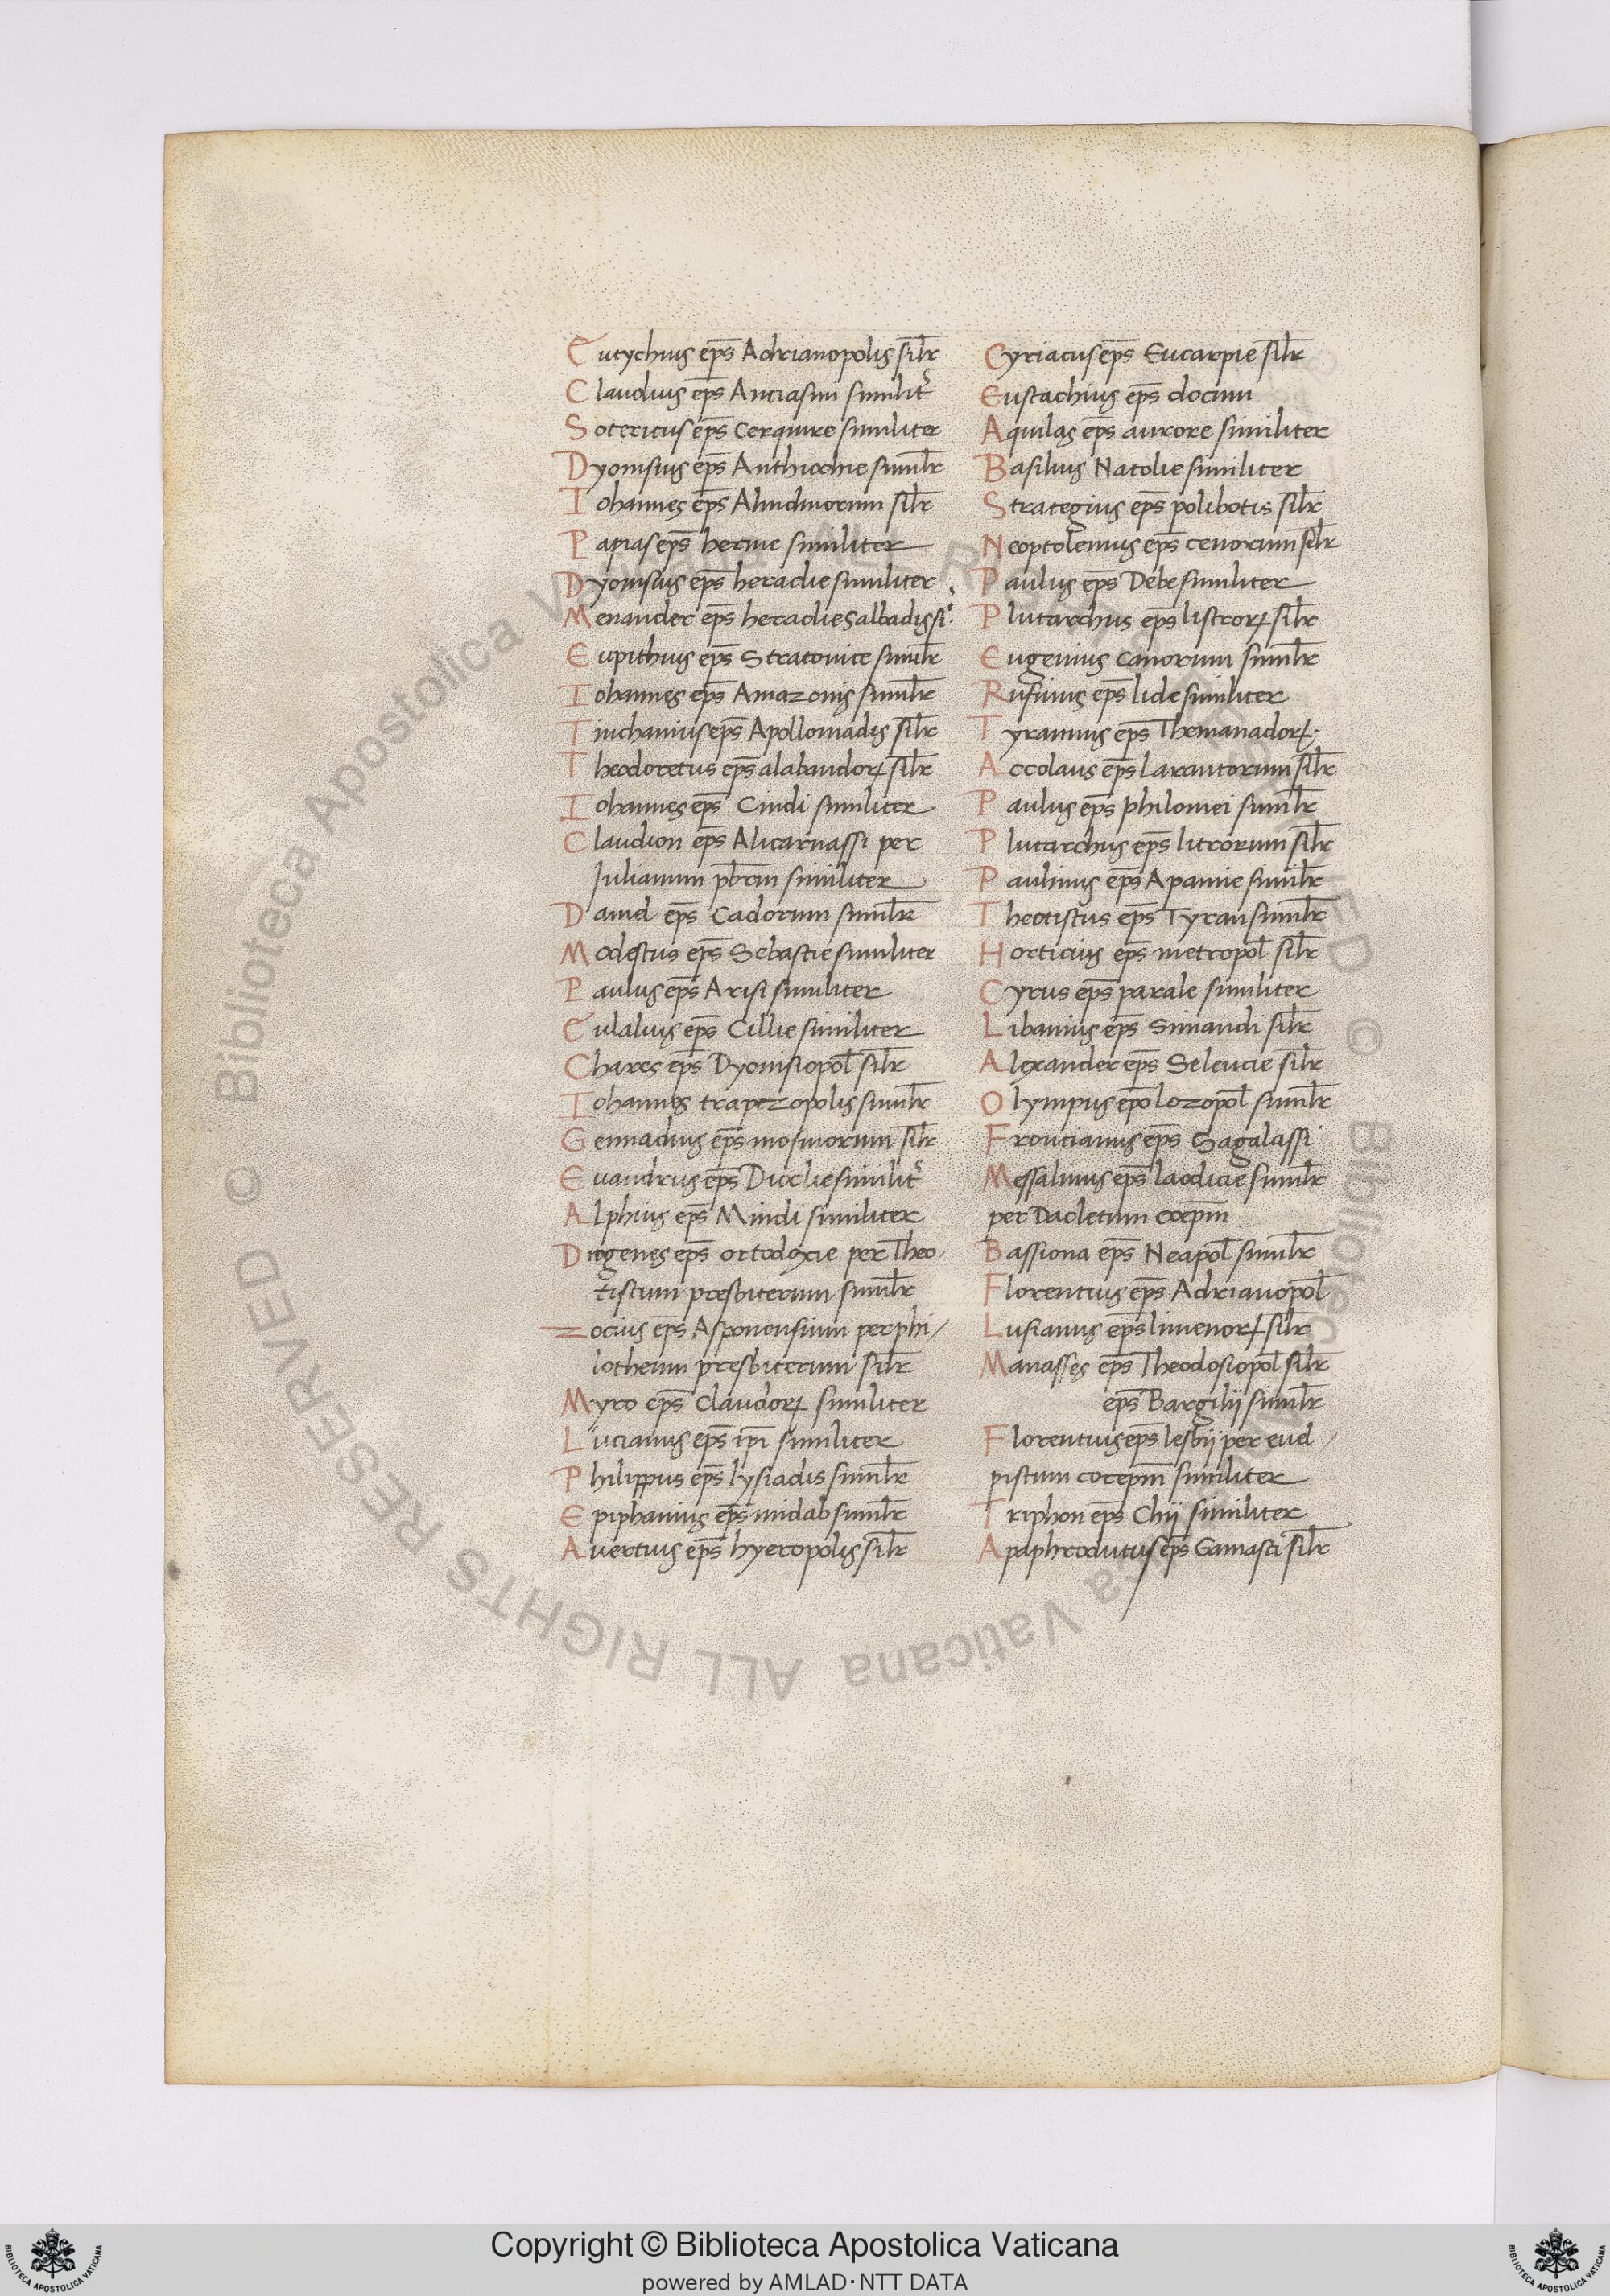 Eutychius ep̄s Adrianopolis sil̄r
Claudius ep̄s Anciasmi similit᷑
Sotericus ep̄s Cerquire similiter
Dyonisius ep̄s Anthiochie simil̄r
Iohannes ep̄s Alindinorum sil̄r
Papias ep̄s herme similiter
Dyonisius ep̄s heraclie similiter
Menander ep̄s heraclie Salbadis si
Eupithius ep̄s Stratonice simil̄r
Iohannes ep̄s Amazonis simil̄r
ep̄s Apolloniadis sil̄r
Theodoretus ep̄s alabandoꝝ sil̄r
Iohannes ep̄s Cindi similiter
Claudion ep̄s Alicarnassi per
Iulianum pb̄rm similiter
Daniel ep̄s Cadorum simil̄r
Modestus ep̄s Sebastie similiter
Paulus ep̄s Arisi similiter
Eulalius ep̄s Cillie similiter
Chares ep̄s Dyonisiopol̄ sil̄r
Iohannes trapezopolis simil̄r
Gennadius ep̄s mosinorum sil̄r
Evandrus ep̄s Dioclie similit᷑
Alphius ep̄s Mindi similiter
Diogenes ep̄s ortodoxie per Theo-
tistum presbiterum simil̄r
Zotius ep̄s Asponensium per phi/
lotheum presbiterum sil̄r
Myro ep̄s Claudoꝝ similiter
Lucianus ep̄s ip̄i similiter
Philippus ep̄s lysiadis simil̄r
Epiphanius ep̄s midab simil̄r
Avertius ep̄s hyeropolis sil̄r
Cyriacus ep̄s Eucarpie sil̄r
Eustachius ep̄s docimi
Aquilas ep̄s aurore similiter
Basilius Natolie similiter
Strategius ep̄s polibotis sil̄r
Neoptolemus ep̄s cenorum sil̄r
Paulus ep̄s Debe similiter
Plutarchus ep̄s listroꝝ sil̄r
Eugenius Canorum simil̄r
Rufinus ep̄s lide similiter
Tyrannus ep̄s Themanadoꝝ.
Accolaus ep̄s Larantorum sil̄r
Paulus ep̄s philomei simil̄r
Plutarchus ep̄s litrorum sil̄r
Paulinus ep̄s Apamie simil̄r
Theotistus ep̄s Tyran simil̄r
Horticius ep̄s metropol̄ sil̄r
Cyrus ep̄s parale similiter
Libanius ep̄s Simandi sil̄r
Alexander ep̄s Seleucie sil̄r
Olympus ep̄o lozopol̄ simil̄r
Frontianus ep̄s Sagalassi
Messalinus ep̄s laodicie simil̄r
per Dacletum coep̄m
Bassiona ep̄s Neapol̄ simil̄r
Florentius ep̄s Adrianopol̄
Lusianus ep̄s limenoꝝ sil̄r
Manasses ep̄s Theodosiopol̄ sil̄r
ep̄s Bargilij simil̄r
Florentius ep̄s lesbij per eud/
pistum corep̄m similiter
Triphon ep̄s Chij similiter
Apaphroditus ep̄s Gamasci sil̄r
© Biblioteca Apostolica Vaticana ALL RIGHTS RESERVED © Biblioteca Apostolica Vaticana ALL RIGHTS RESERVED
Copyright © Biblioteca Apostolica Vaticana
powered by AMLAD·NTT DATA
BIBLIOTECA APOSTOLICA VATICANA
BIBLIOTECA APOSTOLICA VATICANA